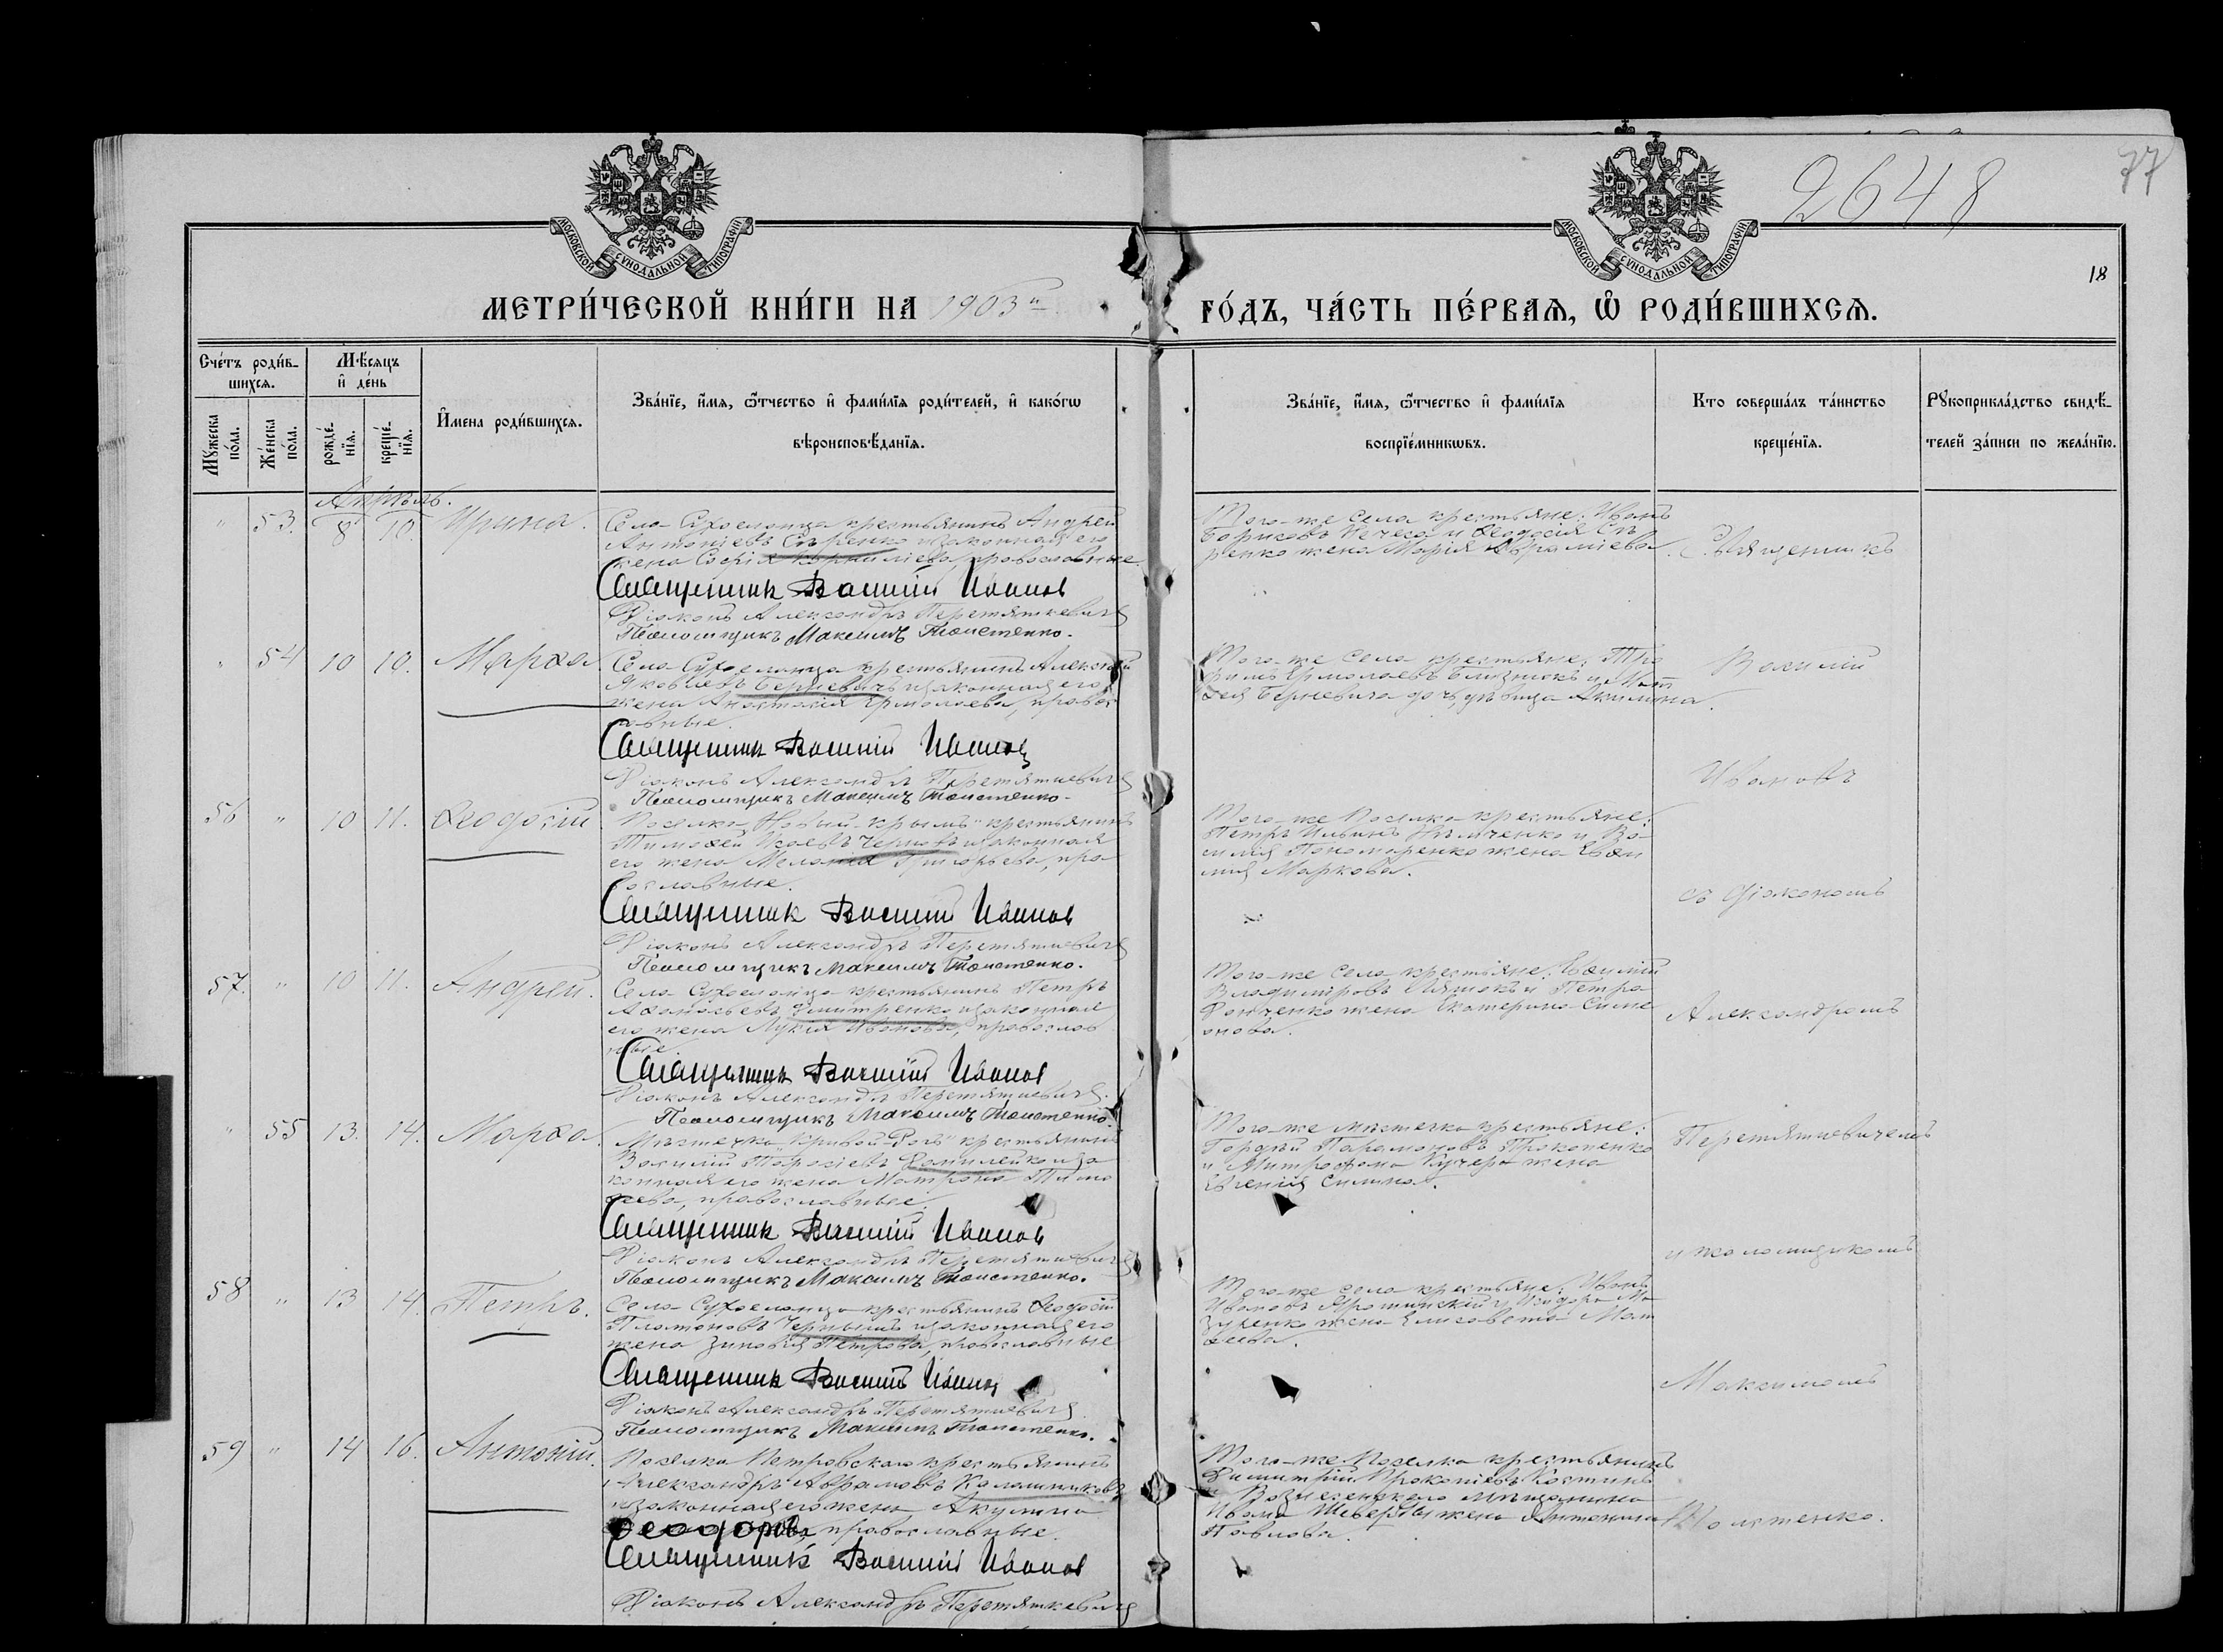 2648
77
18
МОСКОВСКОЙ СѴНОДАЛЬНОЙ ТИПОГРАФІИ
МОСКОВСКОЙ СѴНОДАЛЬНОЙ ТИПОГРАФІИ
МЕТРИ́ЧЕСКОЙ КНИ́ГИ НА 1903 й
ГО́ДЪ, ЧА́СТЬ ПЕ́РВАѦ, Ѡ҆ РОДИ́ВШИХСѦ.
Сче́тъ роди́в-
шихсѧ.
Мꙋ́жеска по́ла.
Же́нска по́ла.
Мѣ́сѧцъ
и҆ де́нь
рожде́-
нїѧ.
креще́-
нїѧ.
И҆мена роди́вшихсѧ.
Зва́нїе, и҆́мѧ, ѻ҆́тчество и҆ фами́лїѧ роди́телей, и҆ како́гѡ
вѣроисповѣ́данїѧ.
Зва́нїе, и҆́мѧ, ѻ҆́тчество и҆ фами́лїѧ
воспрїе́мникѡвъ.
Кто соверша́лъ та́инство
креще́нїѧ.
Рꙋкоприкла́дство свидѣ́-
телей за́писи по жела́нїю.
Апрѣль.
" 53. 8 10. Ирина.
Села Сухоеланца крестьянинъ Андрей
Антоніевъ Сѣренко и законная его
жена Софія Корниліева, православные
Священник Василій Иванов
Діаконъ Александръ Перетяткевичъ
Псаломщикъ Максимъ Толстенко.
Того-же села крестьяне: Иванъ
Борисовъ Нечеса и Ѳеодосія Сѣ
ренко жена Марія Аврамiева.
Священникъ
" 54 10 10. Марѳа
Села Сухоеланца крестьянинъ Алексѣй
Яковлевъ Берневичъ и законная его
жена Анастасія Ермолаева, правос
лавные.
Священник Василій Иванов
Діаконъ Александръ Перетяткевичъ
Псаломщикъ Максимъ Толстенко.
Того-же села крестьяне: Тро
фимъ Ермолаевъ Близнюкъ и Мат
ѳея Берневича дочь, дѣвица Акилина.
Василій
Ивановъ
56 " 10 11. Ѳеодосій
Поселка "Новый-Крымъ" крестьянинъ
Тимоѳей Исаевъ Черновъ и законная
его жена Меланія Григорьева, пра
вославные.
Священник Василий Иванов
Діаконъ Александръ Перетяткевичъ
Псаломщикъ Максимъ Толстенко.
Того-же поселка крестьяне:
Петръ Ильинъ Нѣмченко и Ва-
силія Пономаренко жена Евѳи
мія Маркова.
съ діакономъ
57. " 10 11. Андрей.
Села Сухоеланца крестьянинъ Петръ
Аѳанасьевъ Дмитренко и законная
его жена Лукія Иванова, православ
ные.
Священник Василий Иванов
Діаконъ Александръ Перетяткевичъ.
Псаломщикъ Максимъ Толстенко.
Того-же села крестьяне: Евѳимій
Владиміровъ и Петра
жена Екатерина Симе
онова.
Александромъ
" 55 13. 14. Марѳа.
Мѣстечка "Кривой-Рогъ" крестьянинъ
Василій Тарасіевъ Данилейко и за
конная его жена Матрона Тимо
ѳеева, православные.
Священник Василий Иванов
Діаконъ Александръ Перетяткевичъ
Псаломщикъ Максимъ Толстенко.
Того-же мѣстечка крестьяне:
Гордѣй Парамоновъ Прокопенко
и Митрофана Кучера жена
Евгенія Силина.
Перетяткевичемъ
и псаломщикомъ
58 " 13 14. Петръ.
Села Сухоеланца крестьянинъ Ѳеодосій
Платоновъ Чернышъ и законная его
жена Зиновія Петрова, православные
Священник Василий Иванов
Діаконъ Александръ Перетяткевичъ
Псаломщикъ Максимъ Толстенко.
Того-же села крестьяне: Иванъ
Ивановъ и Исидора Ма
зуренко жена Елисавета Мат
ѳеева.
Максимомъ
59 " 14 16. Антоній.
Поселка Петровскаго крестьянинъ
Александръ Аврамовъ Калашниковъ
и законная его жена Акулина
Ѳеодорова, православные.
Священник Василий Иванов
Діаконъ Александръ Перетяткевичъ
Того-же поселка крестьянинъ
Димитрій Прокопіевъ Костинъ
и Вознесенскаго мѣщанина
Ивана жена Антонина
Павлова.
Толстенко.